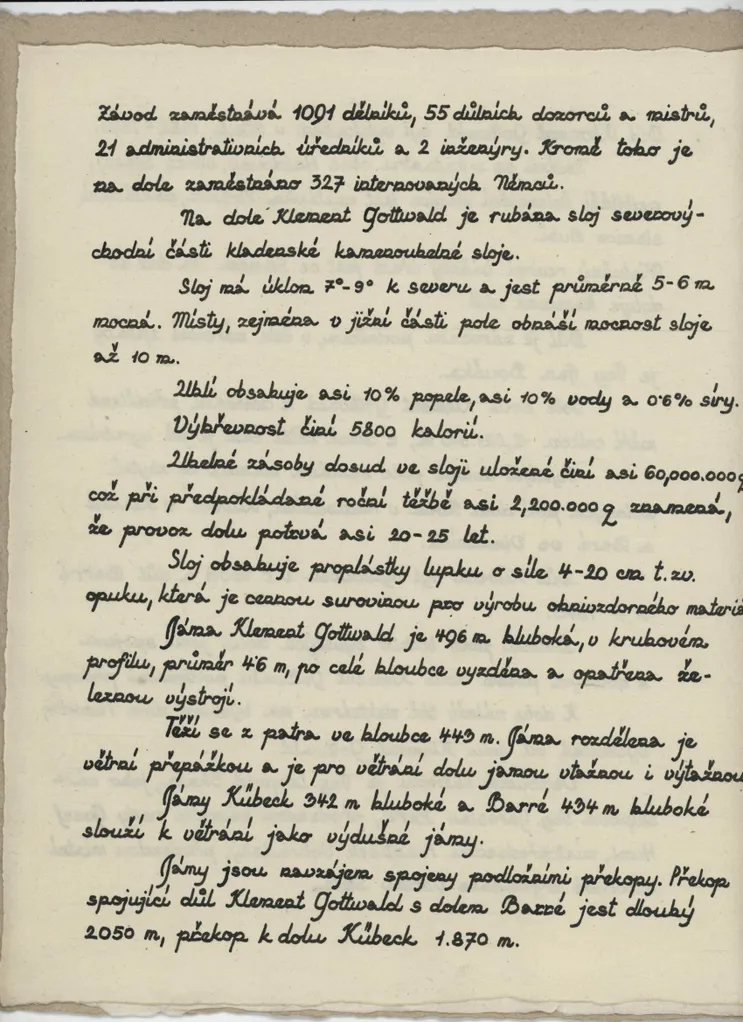 Závod zaměstnává 1091 dělníků, 55 důlních dozorců a mistrů,
21 administrativních úředníků a 2 inženýry. Kromě toho je
na dole zaměstnáno 327 internovaných Němců.
Na dole Klement Gottwald je rubána sloj severový-
chodní části kladenské kamenouhelné sloje.
Sloj má úklon 7°-9° k severu a jest průměrně 5-6 m
mocná. Místy, zejména v jižní části pole obnáší mocnost sloje
až 10 m.
Uhlí obsahuje asi 10% popele, asi 10% vody a 0·6% síry.
Výhřevnost činí 5800 kalorií.
Uhelné zásoby dosud ve sloji uložené činí asi 60,000.000 q
což při předpokládané roční těžbě asi 2,200.000 q znamená,
že provoz dolu potrvá asi 20-25 let.
Sloj obsahuje proplástky lupku o síle 4-20 cm t.zv.
opuku, která je cennou surovinou pro výrobu ohnivzdorného materiá
Jáma Klement Gottwald je 496 m hluboká, v kruhovém
profilu, průměr 4·6 m, po celé hloubce vyzděna a opatřena že-
leznou výstrojí.
Těží se z patra ve hloubce 443 m. Jáma rozdělena je
větrní přepážkou a je pro větrání dolu jamou vtažnou i výtažnou
Jámy Kübeck 342 m hluboké a Barré 434 m hluboké
slouží k větrání jako výdušné jámy.
Jámy jsou navzájem spojeny podložními překopy. Překop
spojující důl Klement Gottwald s dolem Barré jest dlouhý
2050 m, překop k dolu Kübeck 1.870 m.